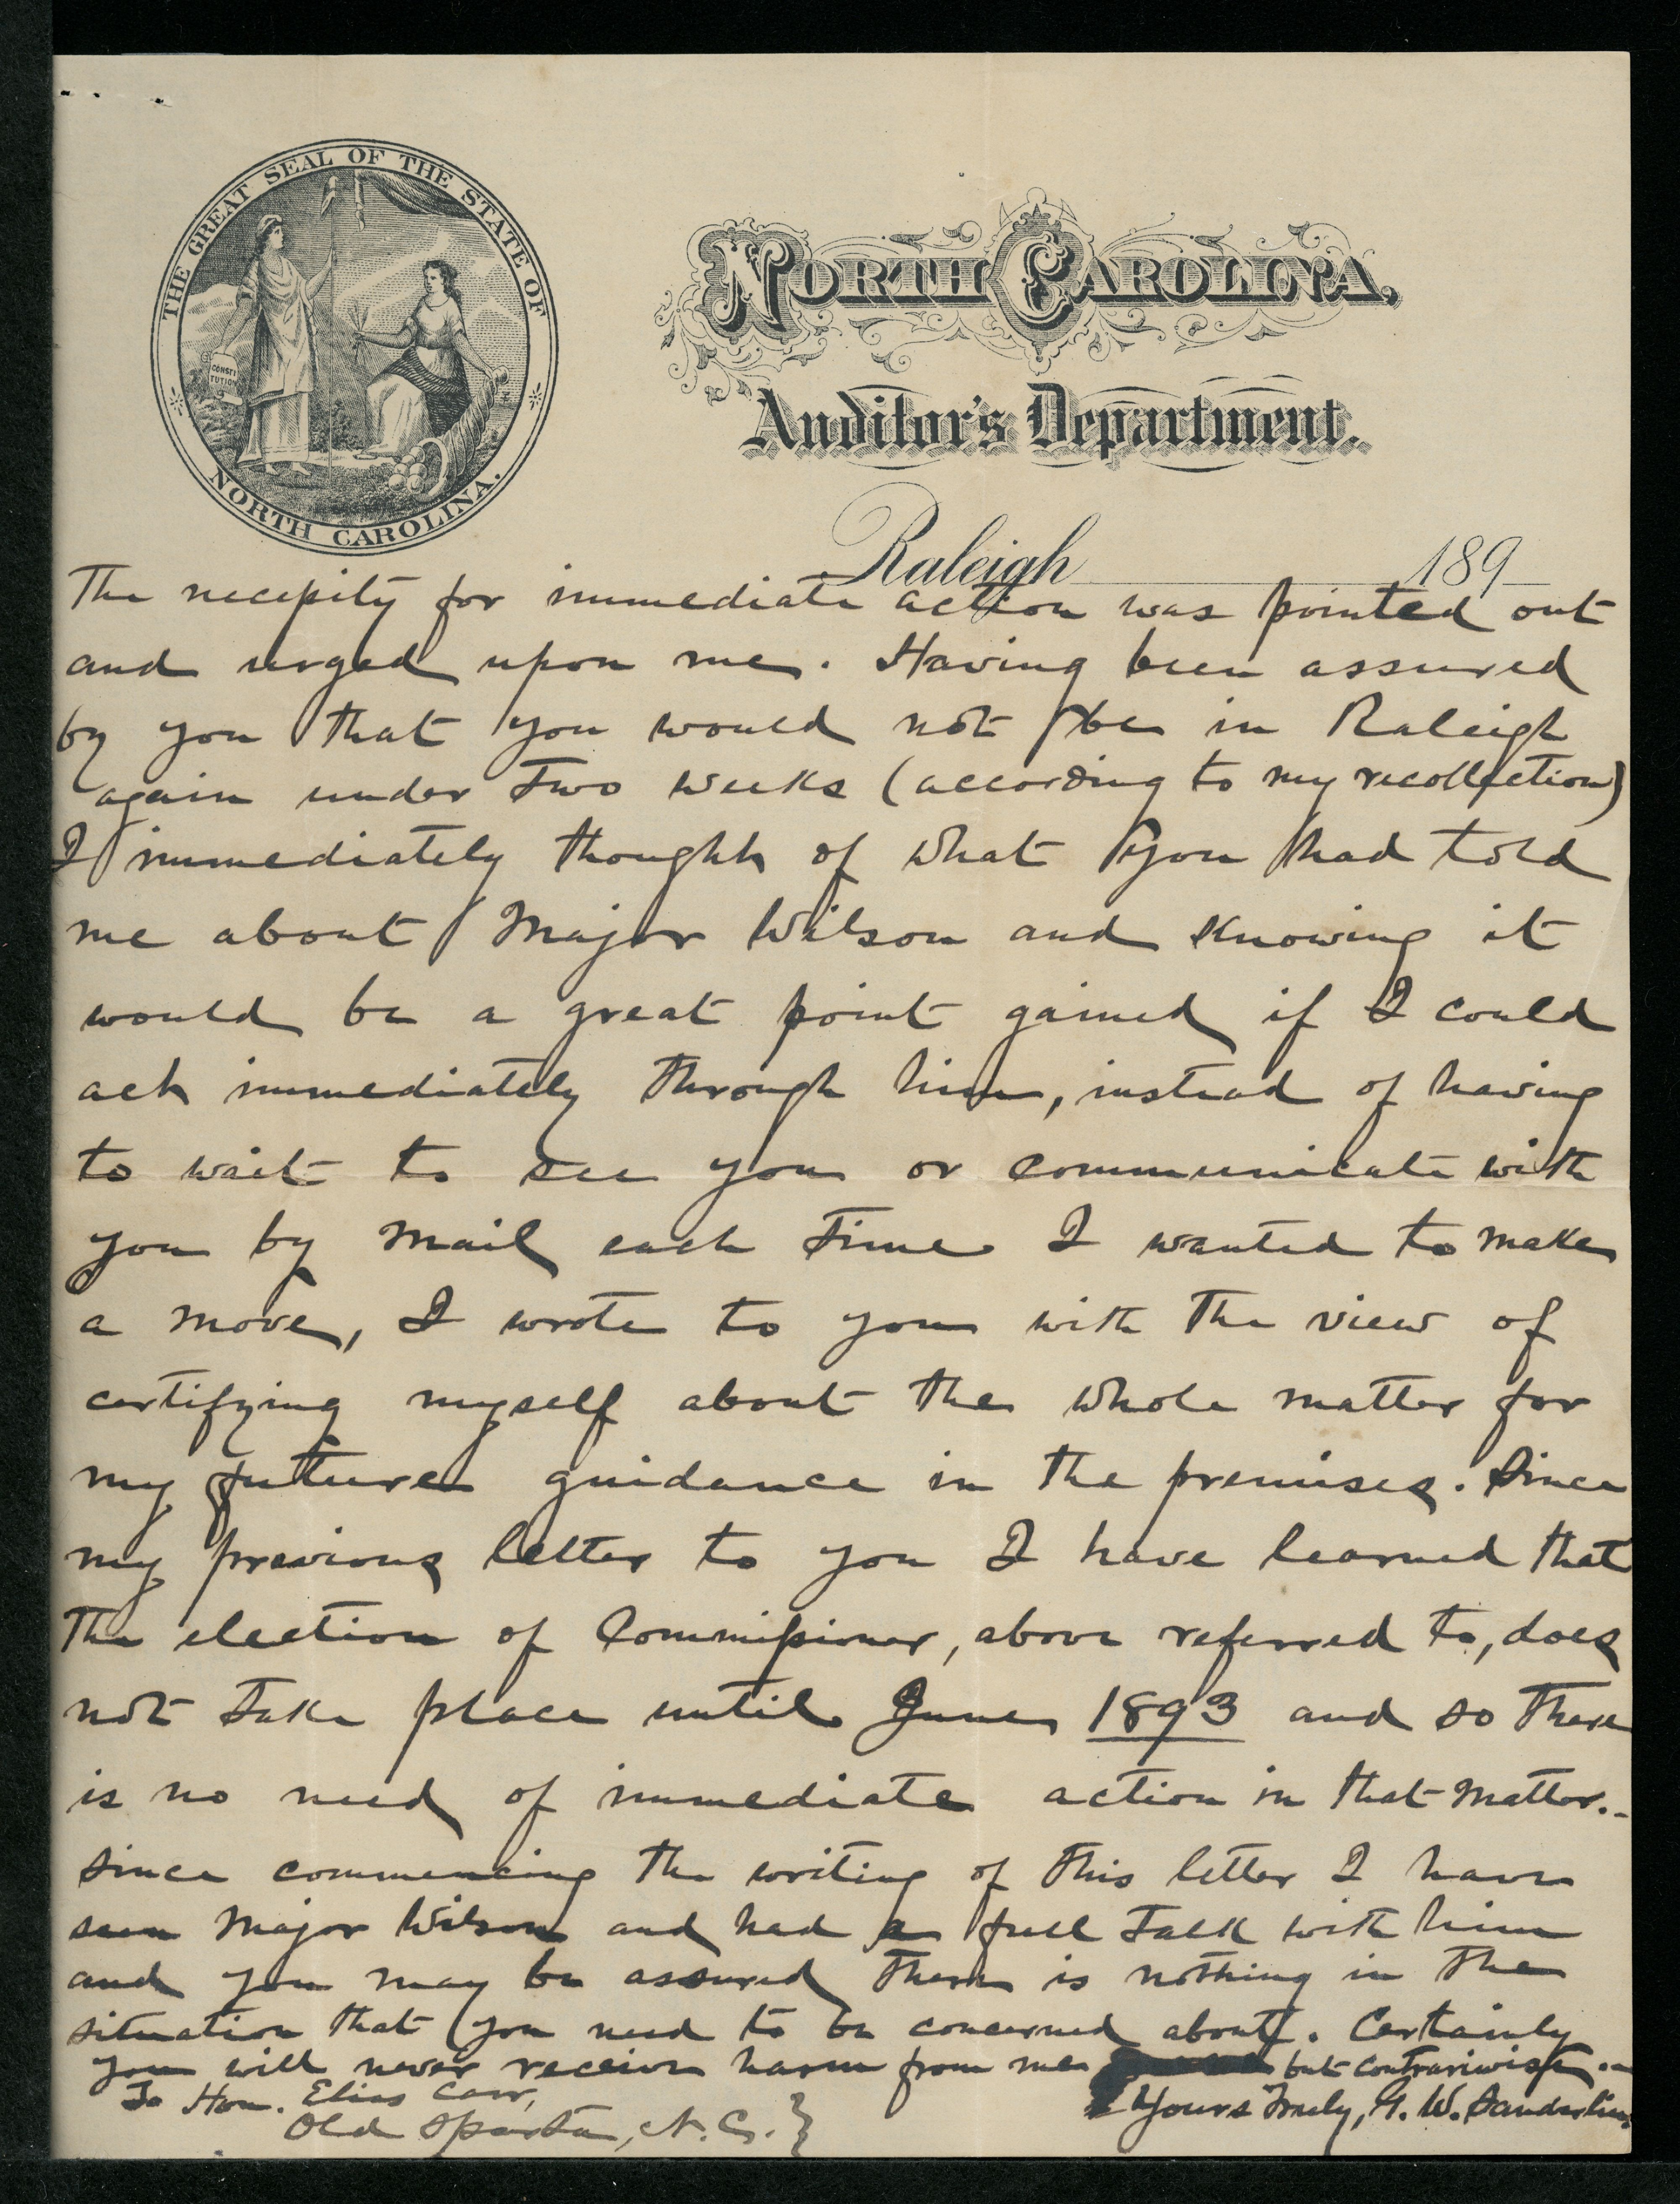 THE GREAT SEAL OF THE STATE OF
NORTH CAROLINA.
CONSTI
TUTION
North Carolina,
Auditor's Department.
Raleigh 189
The necessity for immediate action was pointed out
and urged upon me. Having been assured
by you that you would not be in Raleigh
again under two weeks (according to my recollection)
I immediately thought of what you had told
me about Major Wilson and knowing it
would be a great point gained if I could
act immediately through him, instead of having
to wait to see you or communicate with
you by mail each time I wanted to make
a move, I wrote to you with the view of
certifying myself about the whole matter for
my future guidance in the premises. Since
my previous letter to you I have learned that
the election of Commissioner, above referred to, does
not take place until June 1893 and so there
is no need of immediate action in that matter.-
Since commencing the writing of this letter I have
seen Major Wilson and had a full talk with him
and you may be assured there is nothing in the
situation that you need to be concerned about. Certainly
you will never receive harm from me but contrariwise.-
To Hon. Elias Carr, Yours Truly, G. W. Sanderlin.
Old Sparta, N. C. }